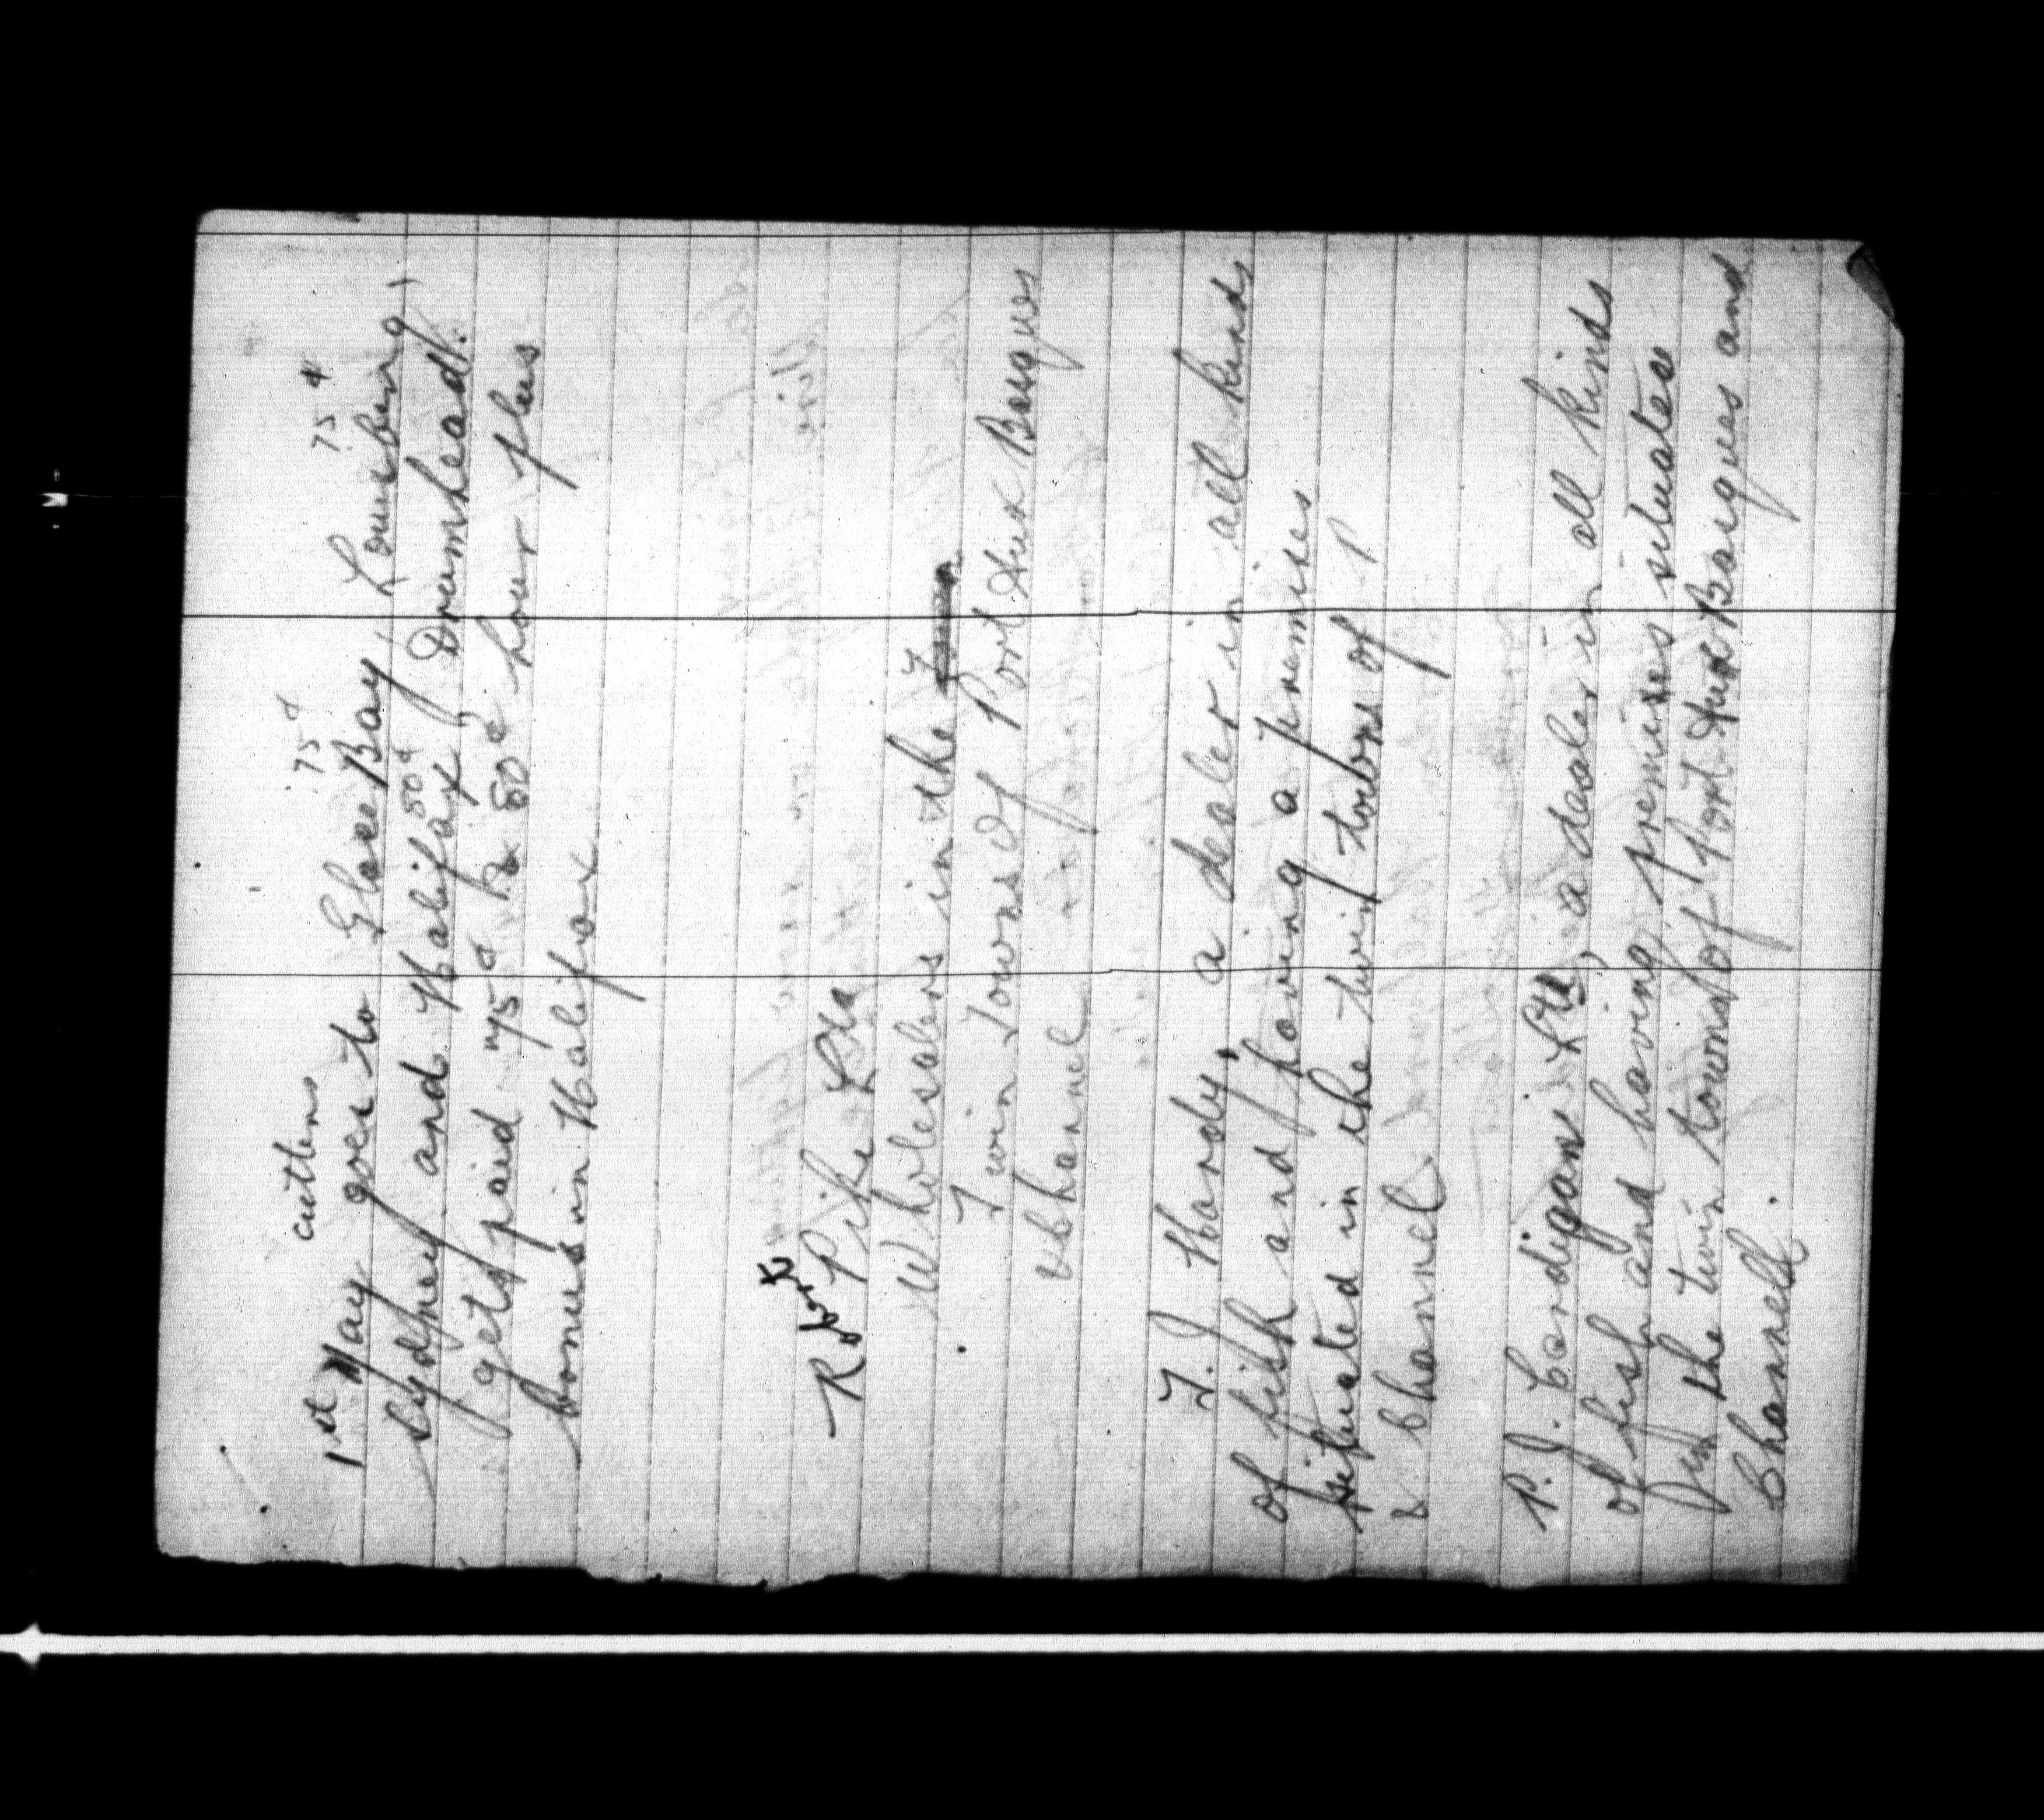 cutters 75¢ 75¢
1st May goes to Glace Bay, Louisburg,
Sydney and Halifax 50¢, Drumhead.
gets paid 75¢ to 50¢ hour plus
bonus in Halifax
Robert Pike Ltd
Wholesalers in the
Twin Towns of Port Aux Basques
& Channel
T. J. Hardy, a dealer in all kinds
of fish and having a premises
situated in the twin towns of P
& Channel
P. J. Cardigan Ltd, a dealer in all kinds
of fish and having premises situated
in the twin towns of Port Aux Basques and
Channell.